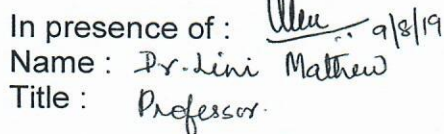 In presence of : 9/8/19
Name : Dr. Lini Mathew
Title : Professor.